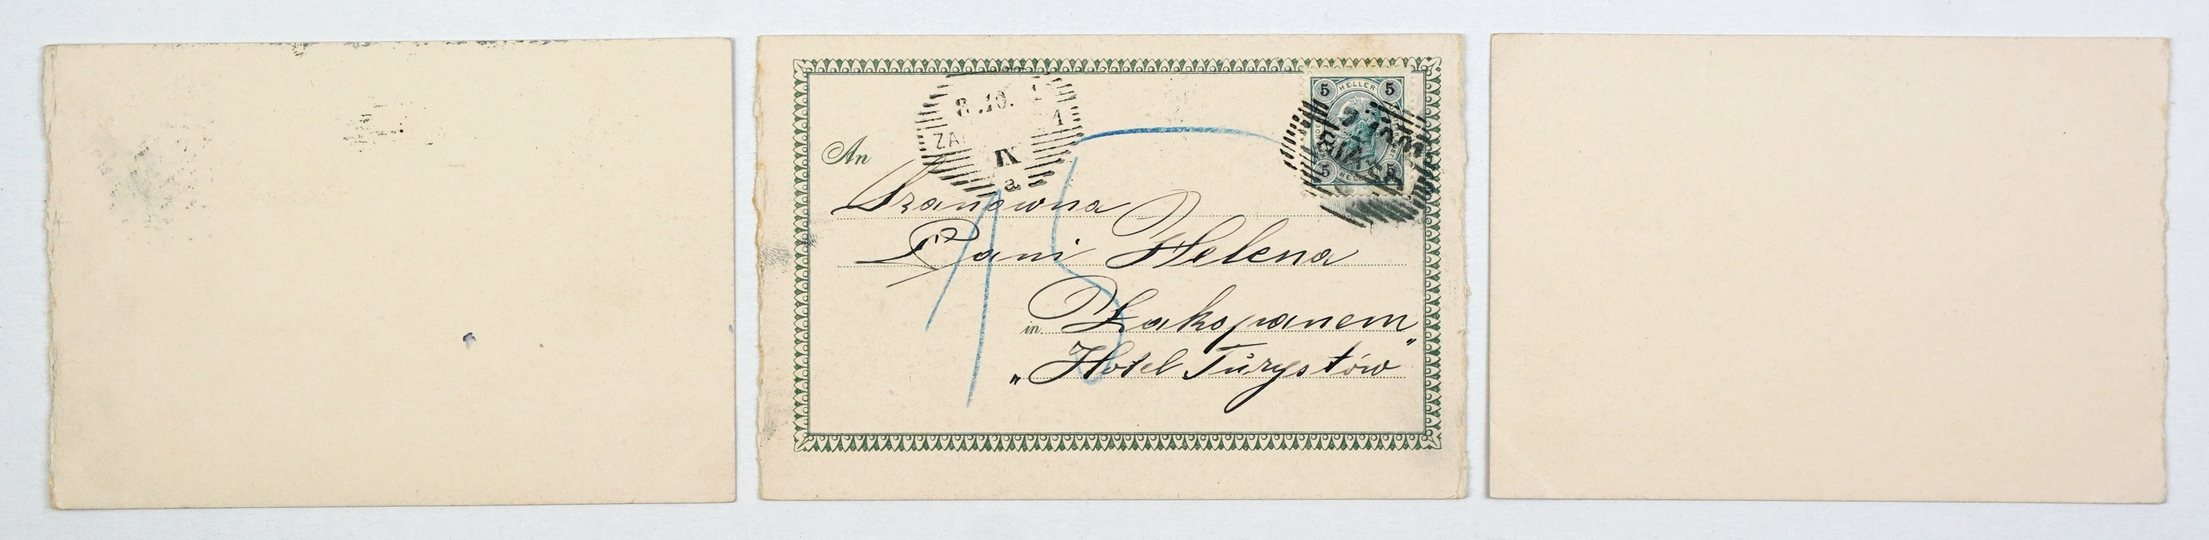 5 HELLER 5
8.10. 1
ZA
IX
a
An
Szanowna
Pani Helena
in Zakopanem
„Hotel Turystów"
15
5 5